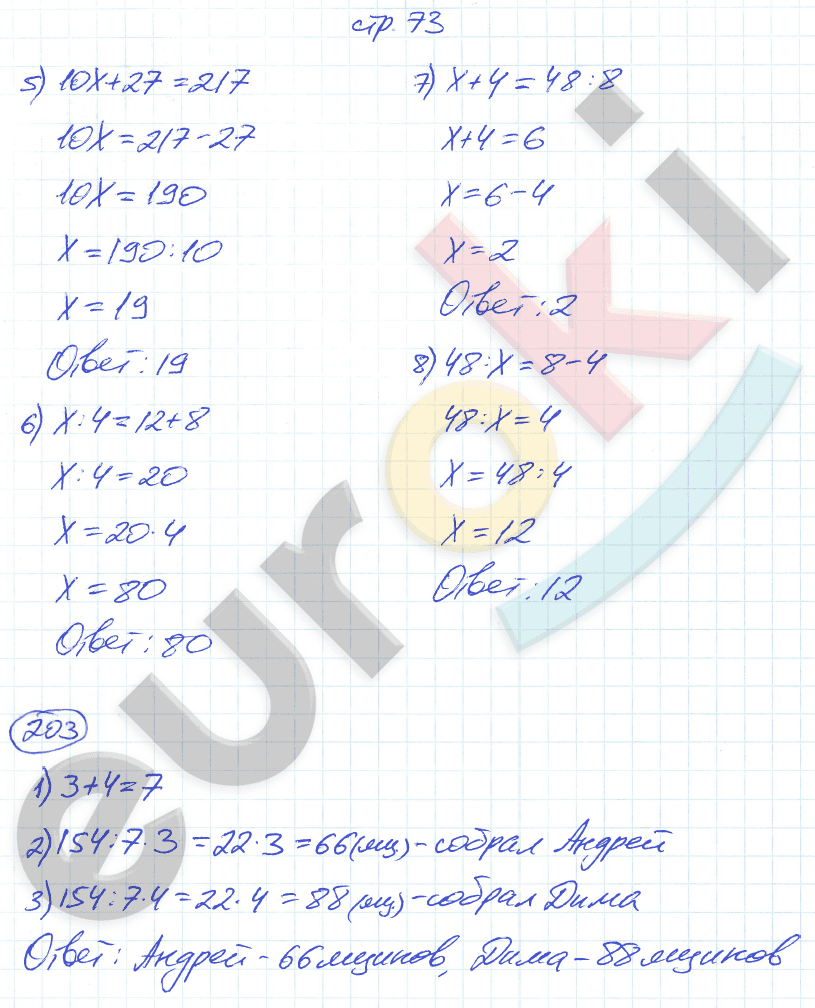 стр. 73
5) 10x+27=217
10x=217-27
10x=190
x=190:10
x=19
Ответ: 19
6) x:4=12+8
x:4=20
x=20·4
x=80
Ответ: 80
7) x+4=48:8
x+4=6
x=6-4
x=2
Ответ: 2
8) 48:x=8-4
48:x=4
x=48:4
x=12
Ответ: 12
203
1) 3+4=7
2) 154:7·3=22·3=66(ящ)-собрал Андрей
3) 154:7·4=22·4=88(ящ)-собрал Дима
Ответ: Андрей-66 ящиков, Дима-88 ящиков
euroki